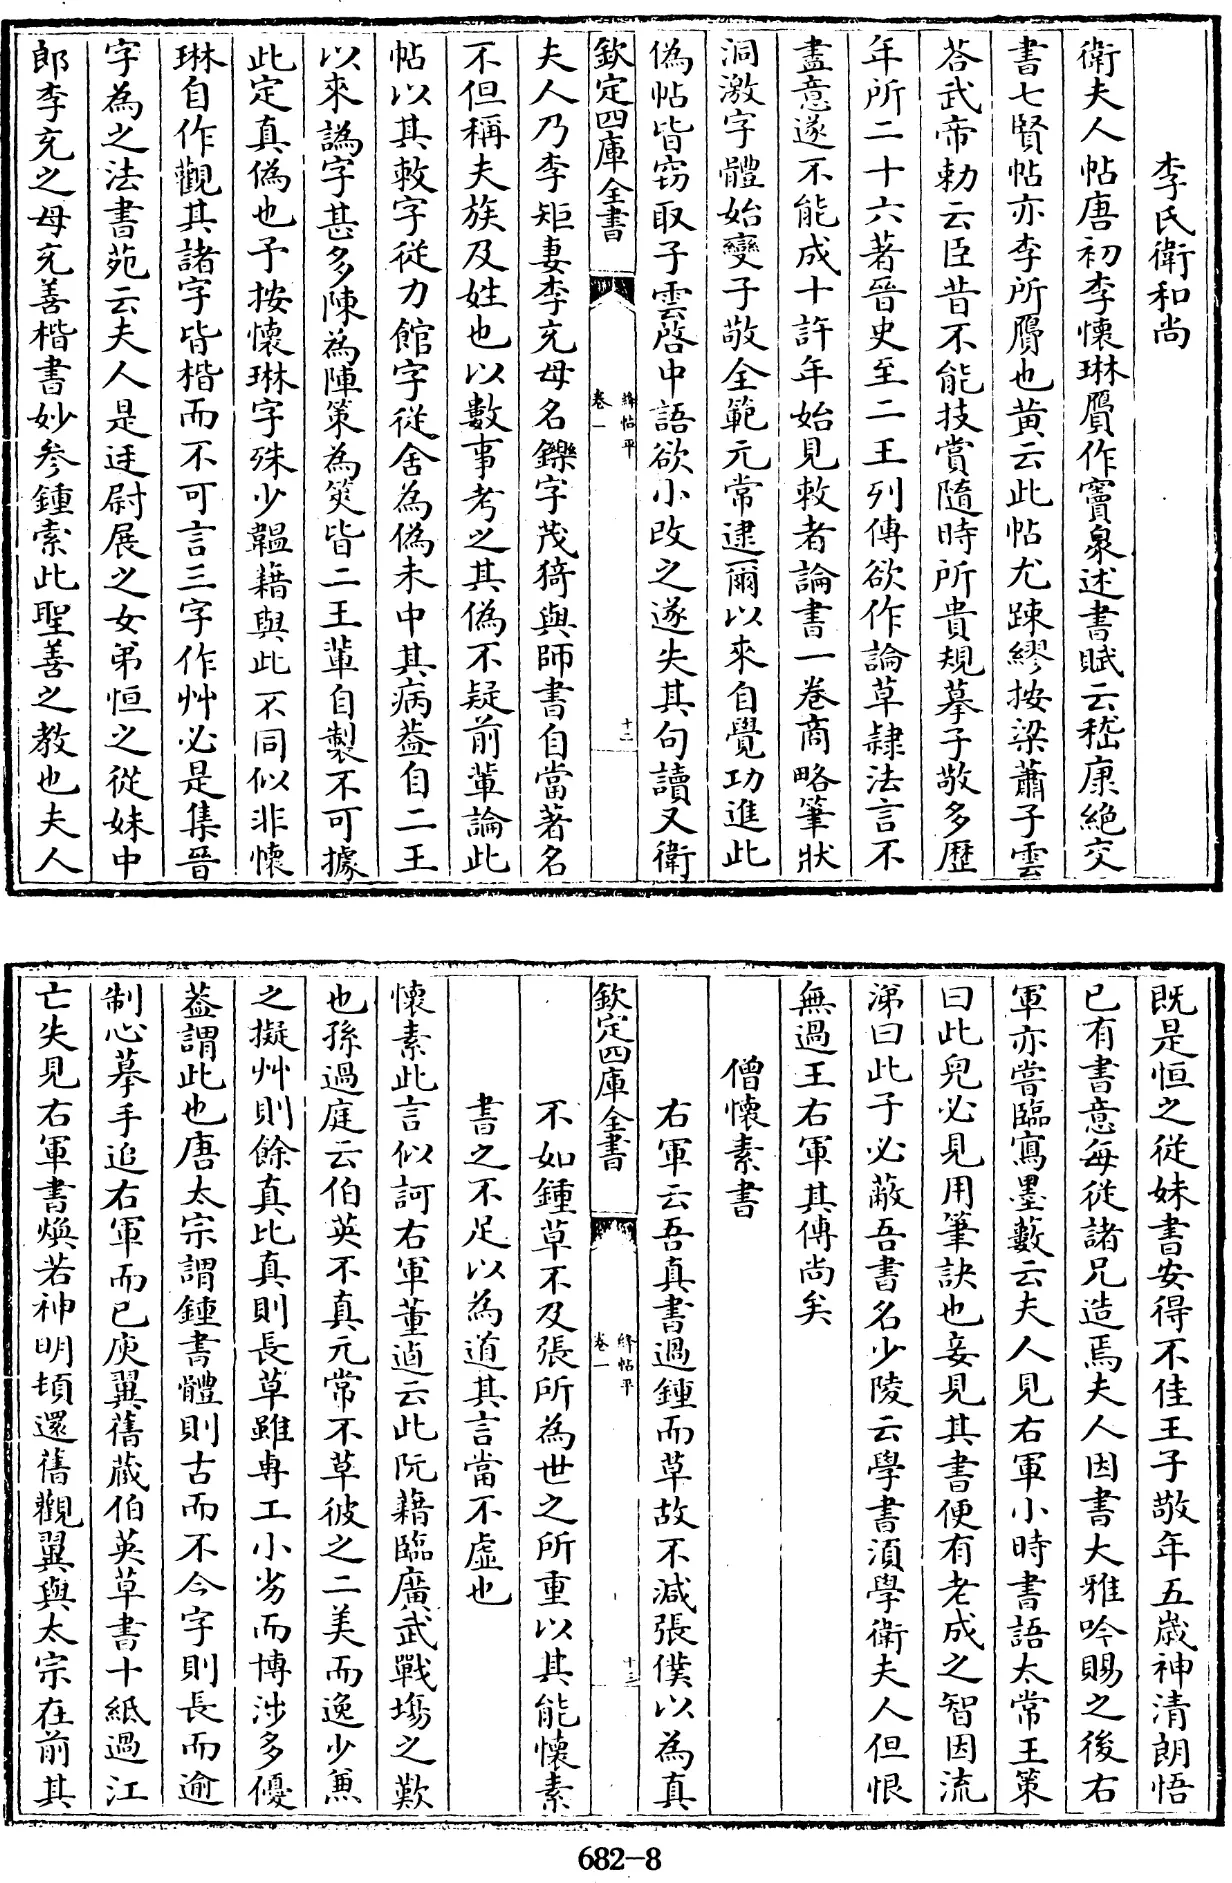 李氏衛和尚
衛夫人帖唐初李懷琳贋作竇臮述書賦云嵇康絶交
書七賢帖亦李所贋也黄云此帖尤踈繆按梁蕭子雲
荅武帝勅云臣昔不能技賞隨時所貴規摹子敬多歴
年所二十六著晉史至二王列傳欲作論草隷法言不
盡意遂不能成十許年始見敕者論書一卷商略筆狀
洞澂字體始變子敬全範元常逮爾以來自覺功進此
偽帖皆竊取子雲啓中語欲小改之遂失其句讀又衛
欽定四庫全書
絳帖平
卷一
十二
夫人乃李矩妻李充母名鑠字茂猗與師書自當著名
不但稱夫族及姓也以數事考之其偽不疑前軰論此
帖以其敕字從力館字從舍為偽未中其病葢自二王
以來譌字甚多陳為陣策為筴皆二王軰自製不可據
此定真偽也予按懷琳字殊少韞藉與此不同似非懷
琳自作觀其諸字皆楷而不可言三字作艸必是集晉
字為之法書苑云夫人是廷尉展之女弟恒之從妹中
郎李充之母充善楷書妙参鍾索此聖善之教也夫人
既是恒之從妹書安得不佳王子敬年五歳神清朗悟
已有書意每從諸兄造焉夫人因書大雅吟賜之後右
軍亦嘗臨寫墨藪云夫人見右軍小時書語太常王策
曰此兒必見用筆訣也妾見其書便有老成之智因流
涕曰此子必蔽吾書名少陵云學書須學衛夫人但恨
無過王右軍其傳尚矣
僧懷素書
右軍云吾真書過鍾而草故不減張僕以為真
欽定四庫全書
絳帖平
卷一
十三
不如鍾草不及張所為世之所重以其能懷素
書之不足以為道其言當不虚也
懷素此言似訶右軍董逌云此阮藉臨廣武戰塲之歎
也孫過庭云伯英不真元常不草彼之二美而逸少兼
之擬艸則餘真比真則長草雖專工小劣而博涉多優
葢謂此也唐太宗謂鍾書體則古而不今字則長而逾
制心摹手追右軍而已庾翼舊蔵伯英草書十紙過江
亡失見右軍書煥若神明頓還舊觀翼與太宗在前其
682-8